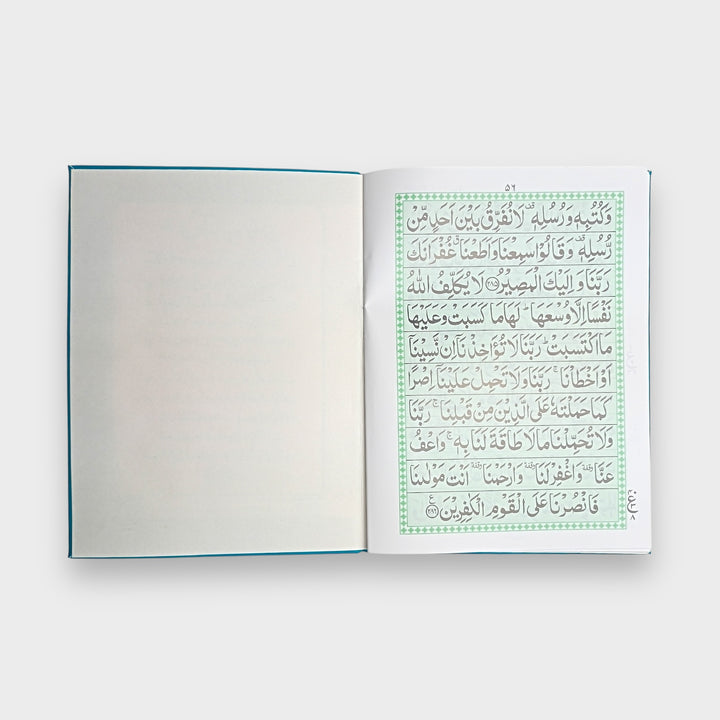 ٥٦
وَكُتُبِهٖ وَرُسُلِهٖ ۫ لَا نُفَرِّقُ بَيْنَ اَحَدٍ مِّنْ
رُّسُلِهٖ ۫ وَقَالُوْا سَمِعْنَا وَاَطَعْنَا ۫ غُفْرَانَكَ
رَبَّنَا وَاِلَيْكَ الْمَصِيْرُ ﴿٢٨٥﴾ لَا يُكَلِّفُ اللّٰهُ
نَفْسًا اِلَّا وُسْعَهَا ؕ لَهَا مَا كَسَبَتْ وَعَلَيْهَا
مَا اكْتَسَبَتْ ؕ رَبَّنَا لَا تُؤَاخِذْنَاۤ اِنْ نَّسِيْنَاۤ
اَوْ اَخْطَاْنَا ۚ رَبَّنَا وَلَا تَحْمِلْ عَلَيْنَاۤ اِصْرًا
كَمَا حَمَلْتَهٗ عَلَى الَّذِيْنَ مِنْ قَبْلِنَا ۚ رَبَّنَا
وَلَا تُحَمِّلْنَا مَا لَا طَاقَةَ لَنَا بِهٖ ۚ وَاعْفُ
عَنَّا وقفة وَاغْفِرْ لَنَا وقفة وَارْحَمْنَا وقفة اَنْتَ مَوْلٰىنَا
فَانْصُرْنَا عَلَى الْقَوْمِ الْكٰفِرِيْنَ ﴿٢٨٦﴾ ع